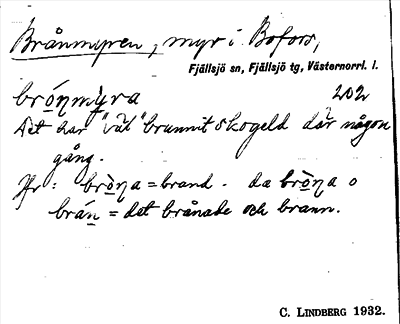 Brånmyren, myr i Bofors,
Fjällsjö sn, Fjällsjö tg, Västernorrl. l.
brónmỳra 202
Det har "vät" brunnit skogeld där någon
gång.
Jfr: bròna = brand. da bròna o
brán = det brånade och brann.
C. LINDBERG 1932.